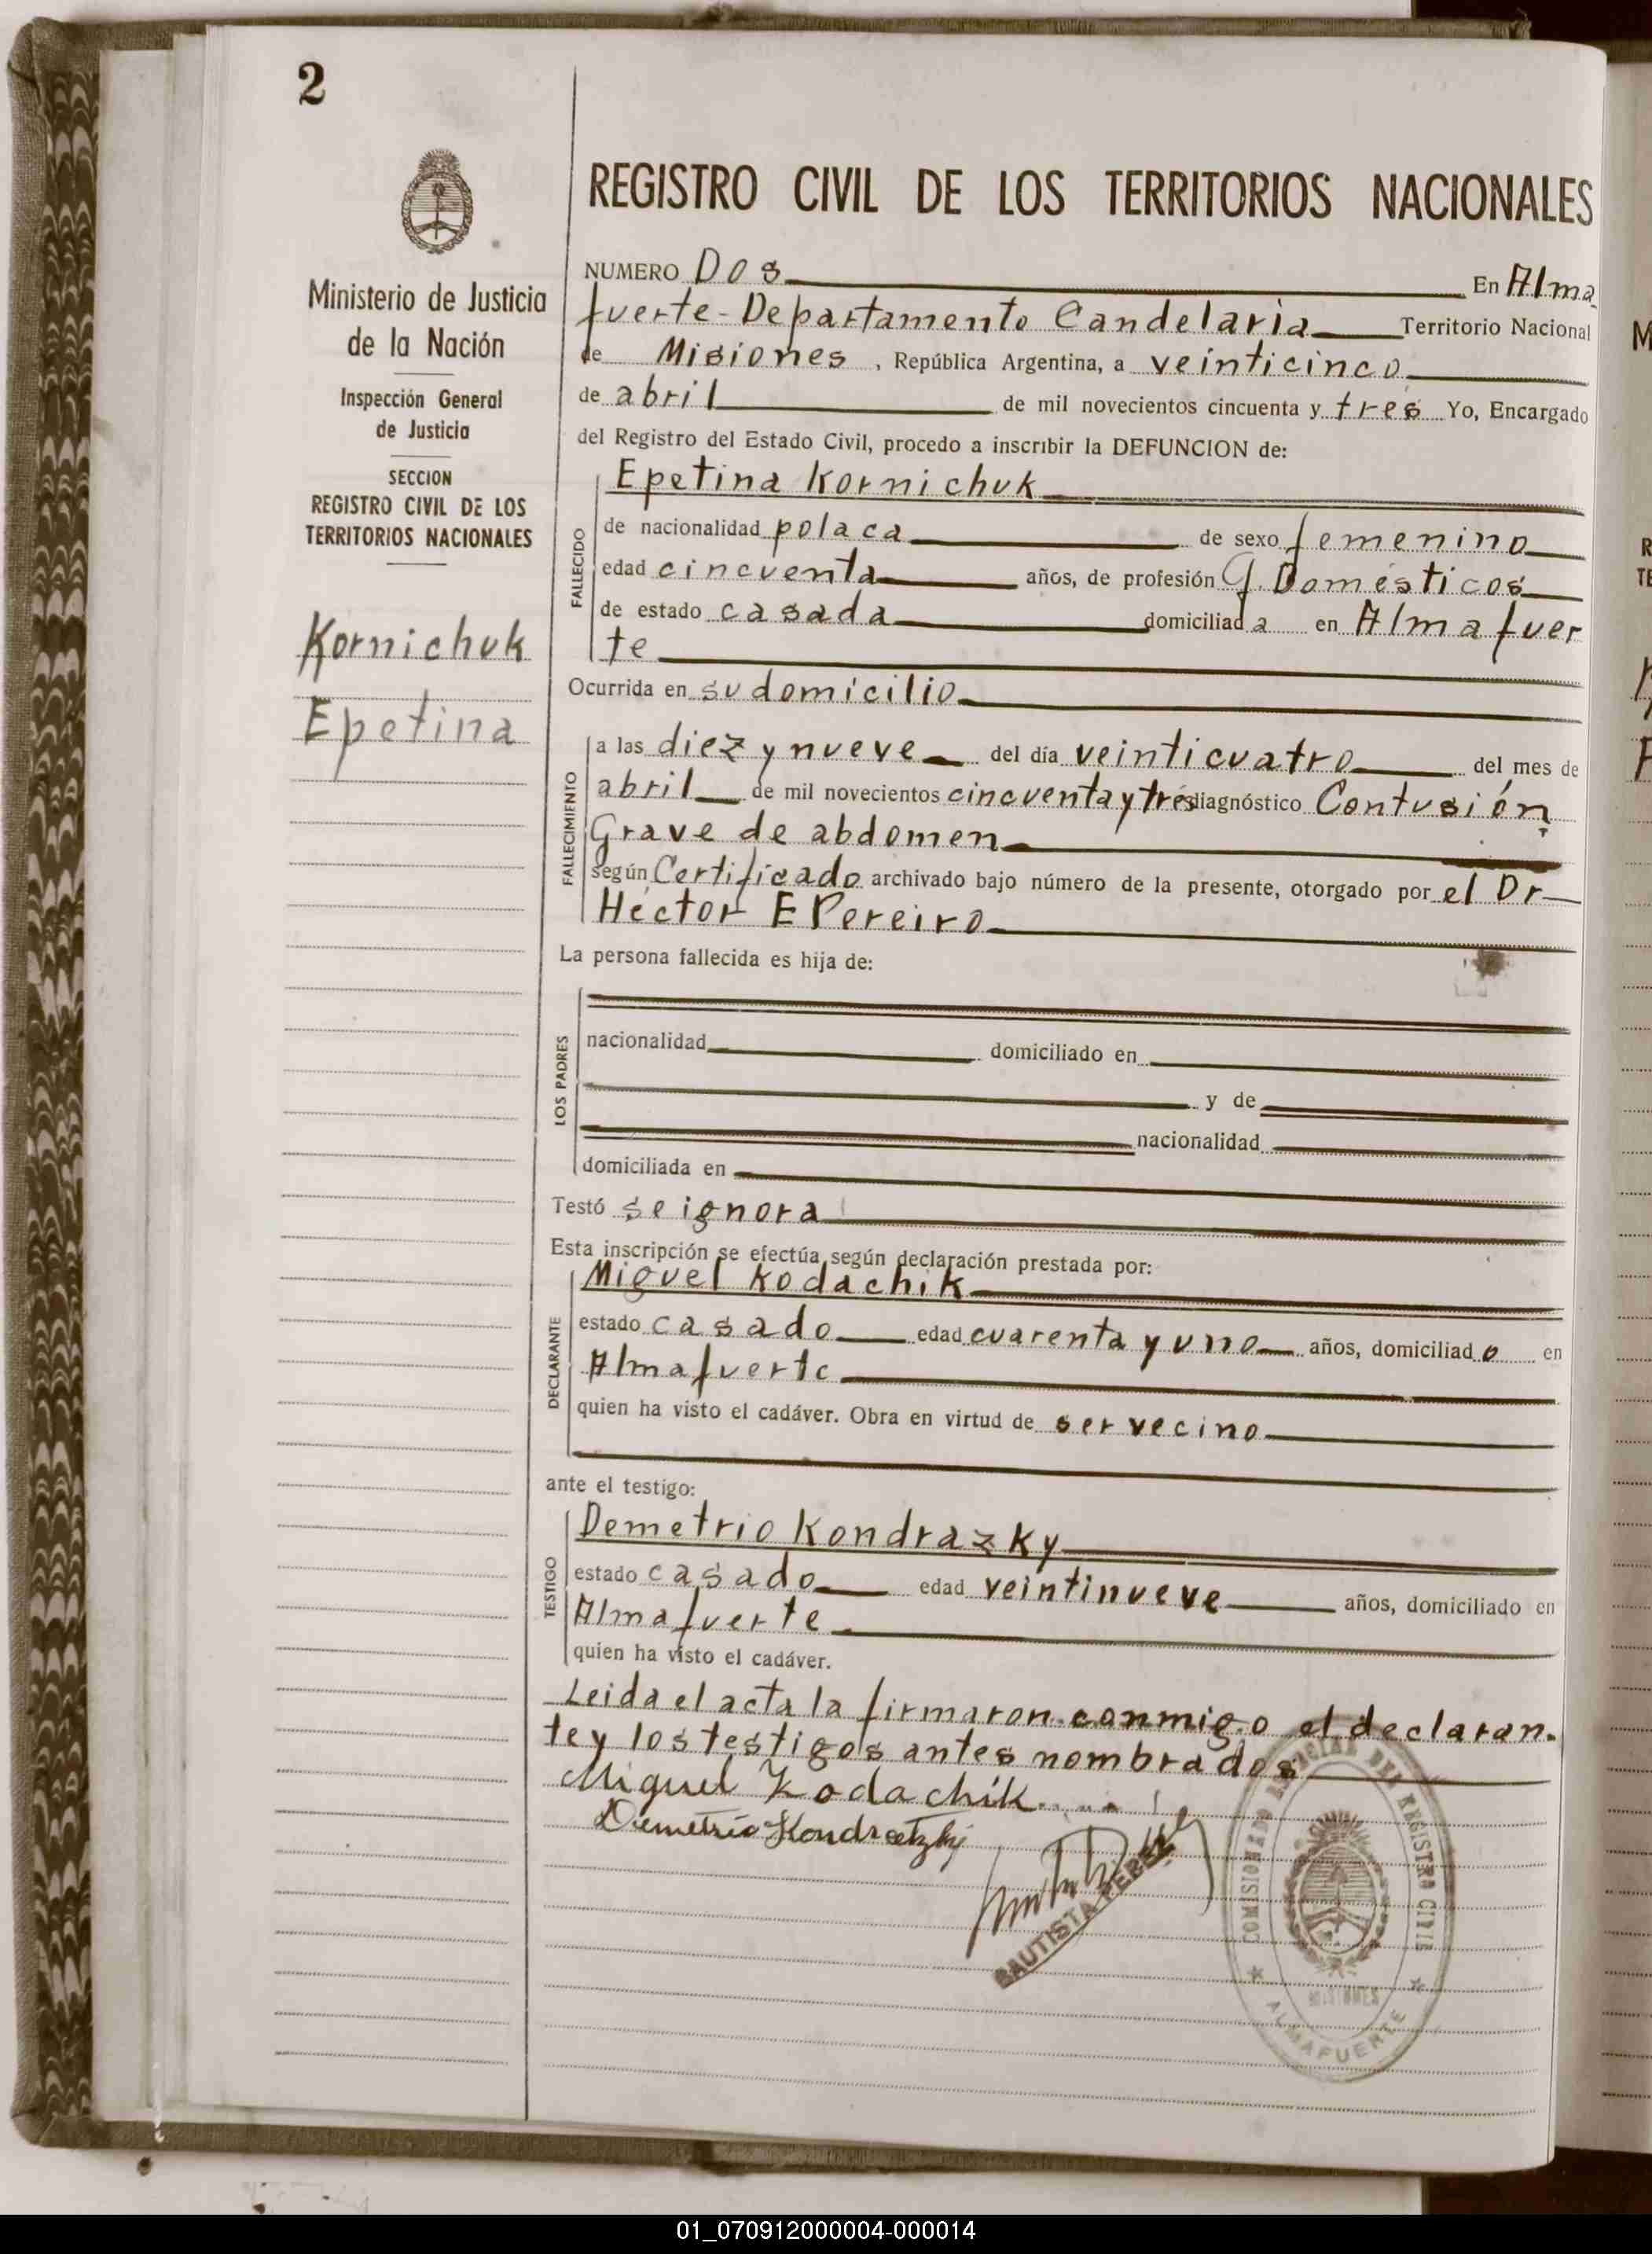 2
Ministerio de Justicia
de la Nación
Inspección General
de Justicia
SECCION
REGISTRO CIVIL DE LOS
TERRITORIOS NACIONALES
Kornichuk
Epetina
REGISTRO CIVIL DE LOS TERRITORIOS NACIONALES
NUMERO Dos En Alma
fuerte - Departamento Candelaria Territorio Nacional
de Misiones, República Argentina, a veinticinco
de abril de mil novecientos cincuenta y tres Yo, Encargado
del Registro del Estado Civil, procedo a inscribir la DEFUNCION de:
FALLECIDO
Epetina Kornichuk
de nacionalidad polaca de sexo femenino
edad cincuenta años, de profesión Q. Domésticos
de estado casada domiciliada en Almafuer
te
Ocurrida en su domicilio
FALLECIMIENTO
a las diez y nueve del día veinticuatro del mes de
abril de mil novecientos cincuenta y tres diagnóstico Contusión
Grave de abdomen
según Certificado archivado bajo número de la presente, otorgado por el Dr
Héctor E Pereiro
La persona fallecida es hija de:
LOS PADRES
nacionalidad domiciliado en
y de
nacionalidad
domiciliada en
Testó se ignora
Esta inscripción se efectúa según declaración prestada por:
DECLARANTE
Miguel Kodachik
estado casado edad cuarenta y uno años, domiciliado en
Almafuerte
quien ha visto el cadáver. Obra en virtud de ser vecino
ante el testigo:
TESTIGO
Demetrio Kondrazky
estado casado edad veintinueve años, domiciliado en
Almafuerte
quien ha visto el cadáver.
Leida el acta la firmaron conmigo el declaran
te y los testigos antes nombrados
Miguel Kodachik
Demetrio Kondratzky
BAUTISTA PEREZ
COMISIONADO DEL REGISTRO CIVIL
MISIONES
ALMAFUERTE
01_070912000004-000014